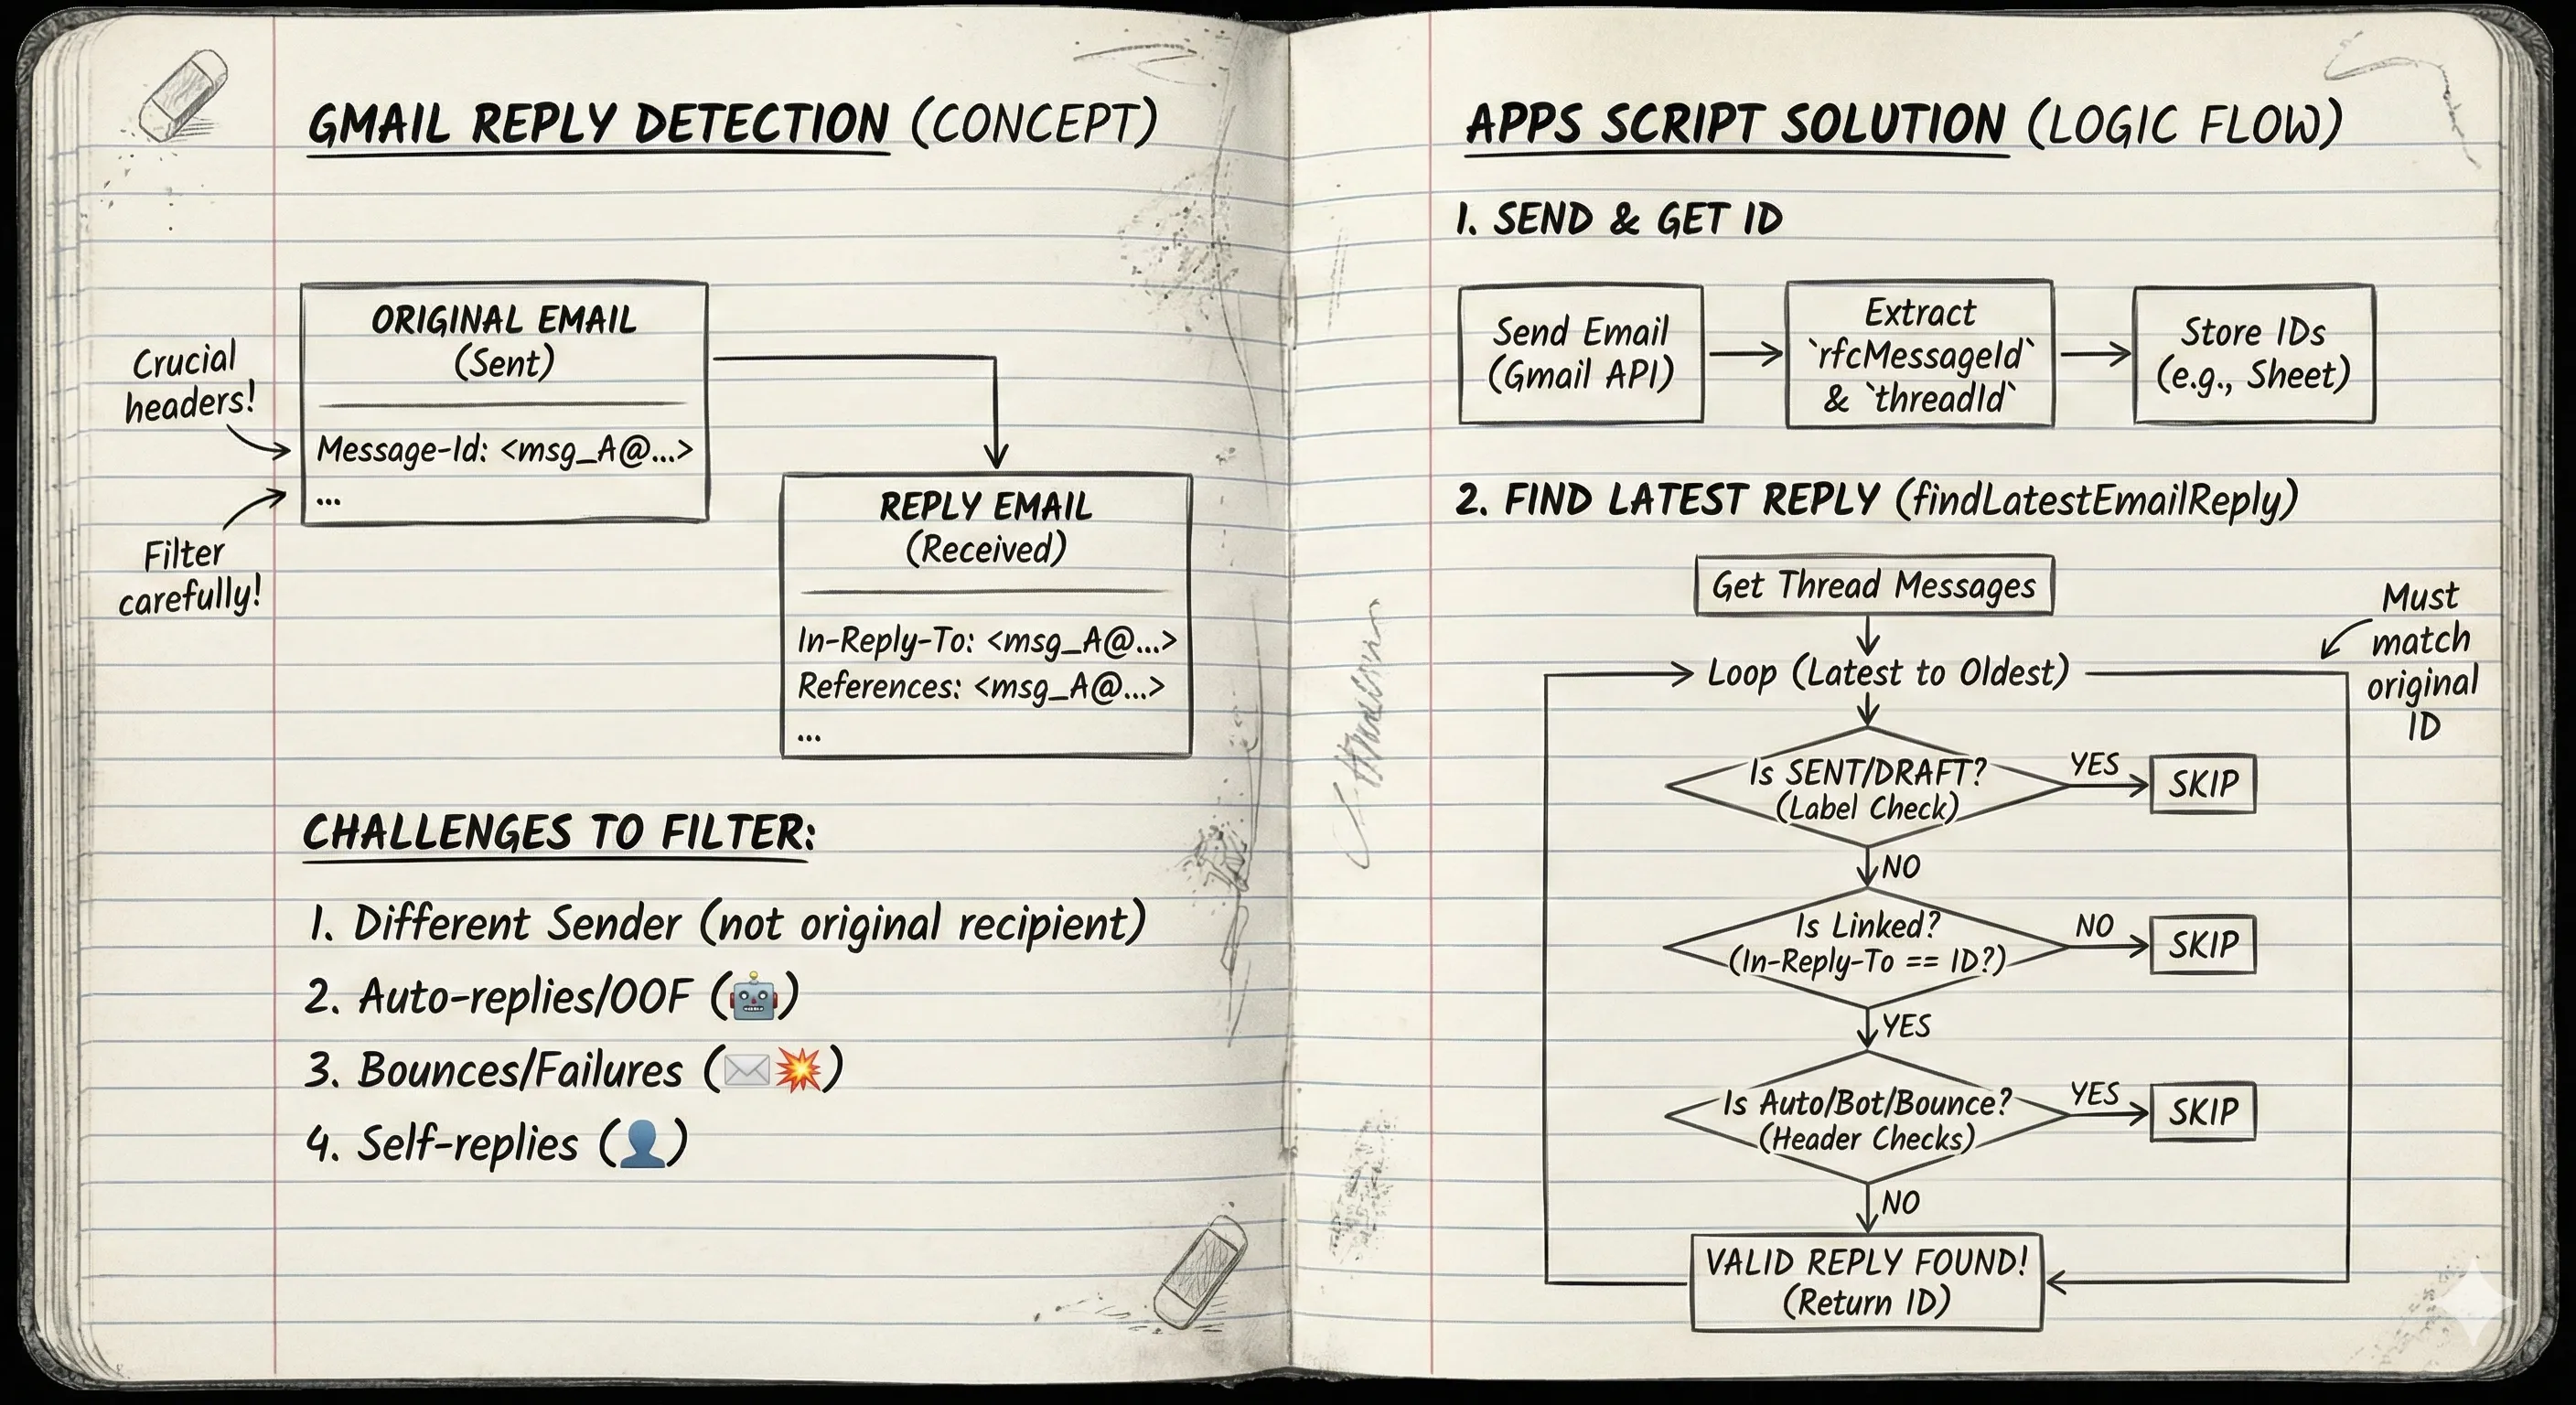 GMAIL REPLY DETECTION (CONCEPT)
ORIGINAL EMAIL
(Sent)
Crucial
headers!
Message-Id: <msg_A@...>
...
Filter
carefully!
REPLY EMAIL
(Received)
In-Reply-To: <msg_A@...>
References: <msg_A@...>
...
CHALLENGES TO FILTER:
1. Different Sender (not original recipient)
2. Auto-replies/OOF (🤖)
3. Bounces/Failures (✉️💥)
4. Self-replies (👤)
APPS SCRIPT SOLUTION (LOGIC FLOW)
1. SEND & GET ID
Send Email
(Gmail API)
Extract
`rfcMessageId`
& `threadId`
Store IDs
(e.g., Sheet)
2. FIND LATEST REPLY (findLatestEmailReply)
Get Thread Messages
Must
match
original
ID
Loop (Latest to Oldest)
Is SENT/DRAFT?
(Label Check)
YES
SKIP
NO
Is Linked?
(In-Reply-To == ID?)
NO
SKIP
YES
Is Auto/Bot/Bounce?
(Header Checks)
YES
SKIP
NO
VALID REPLY FOUND!
(Return ID)